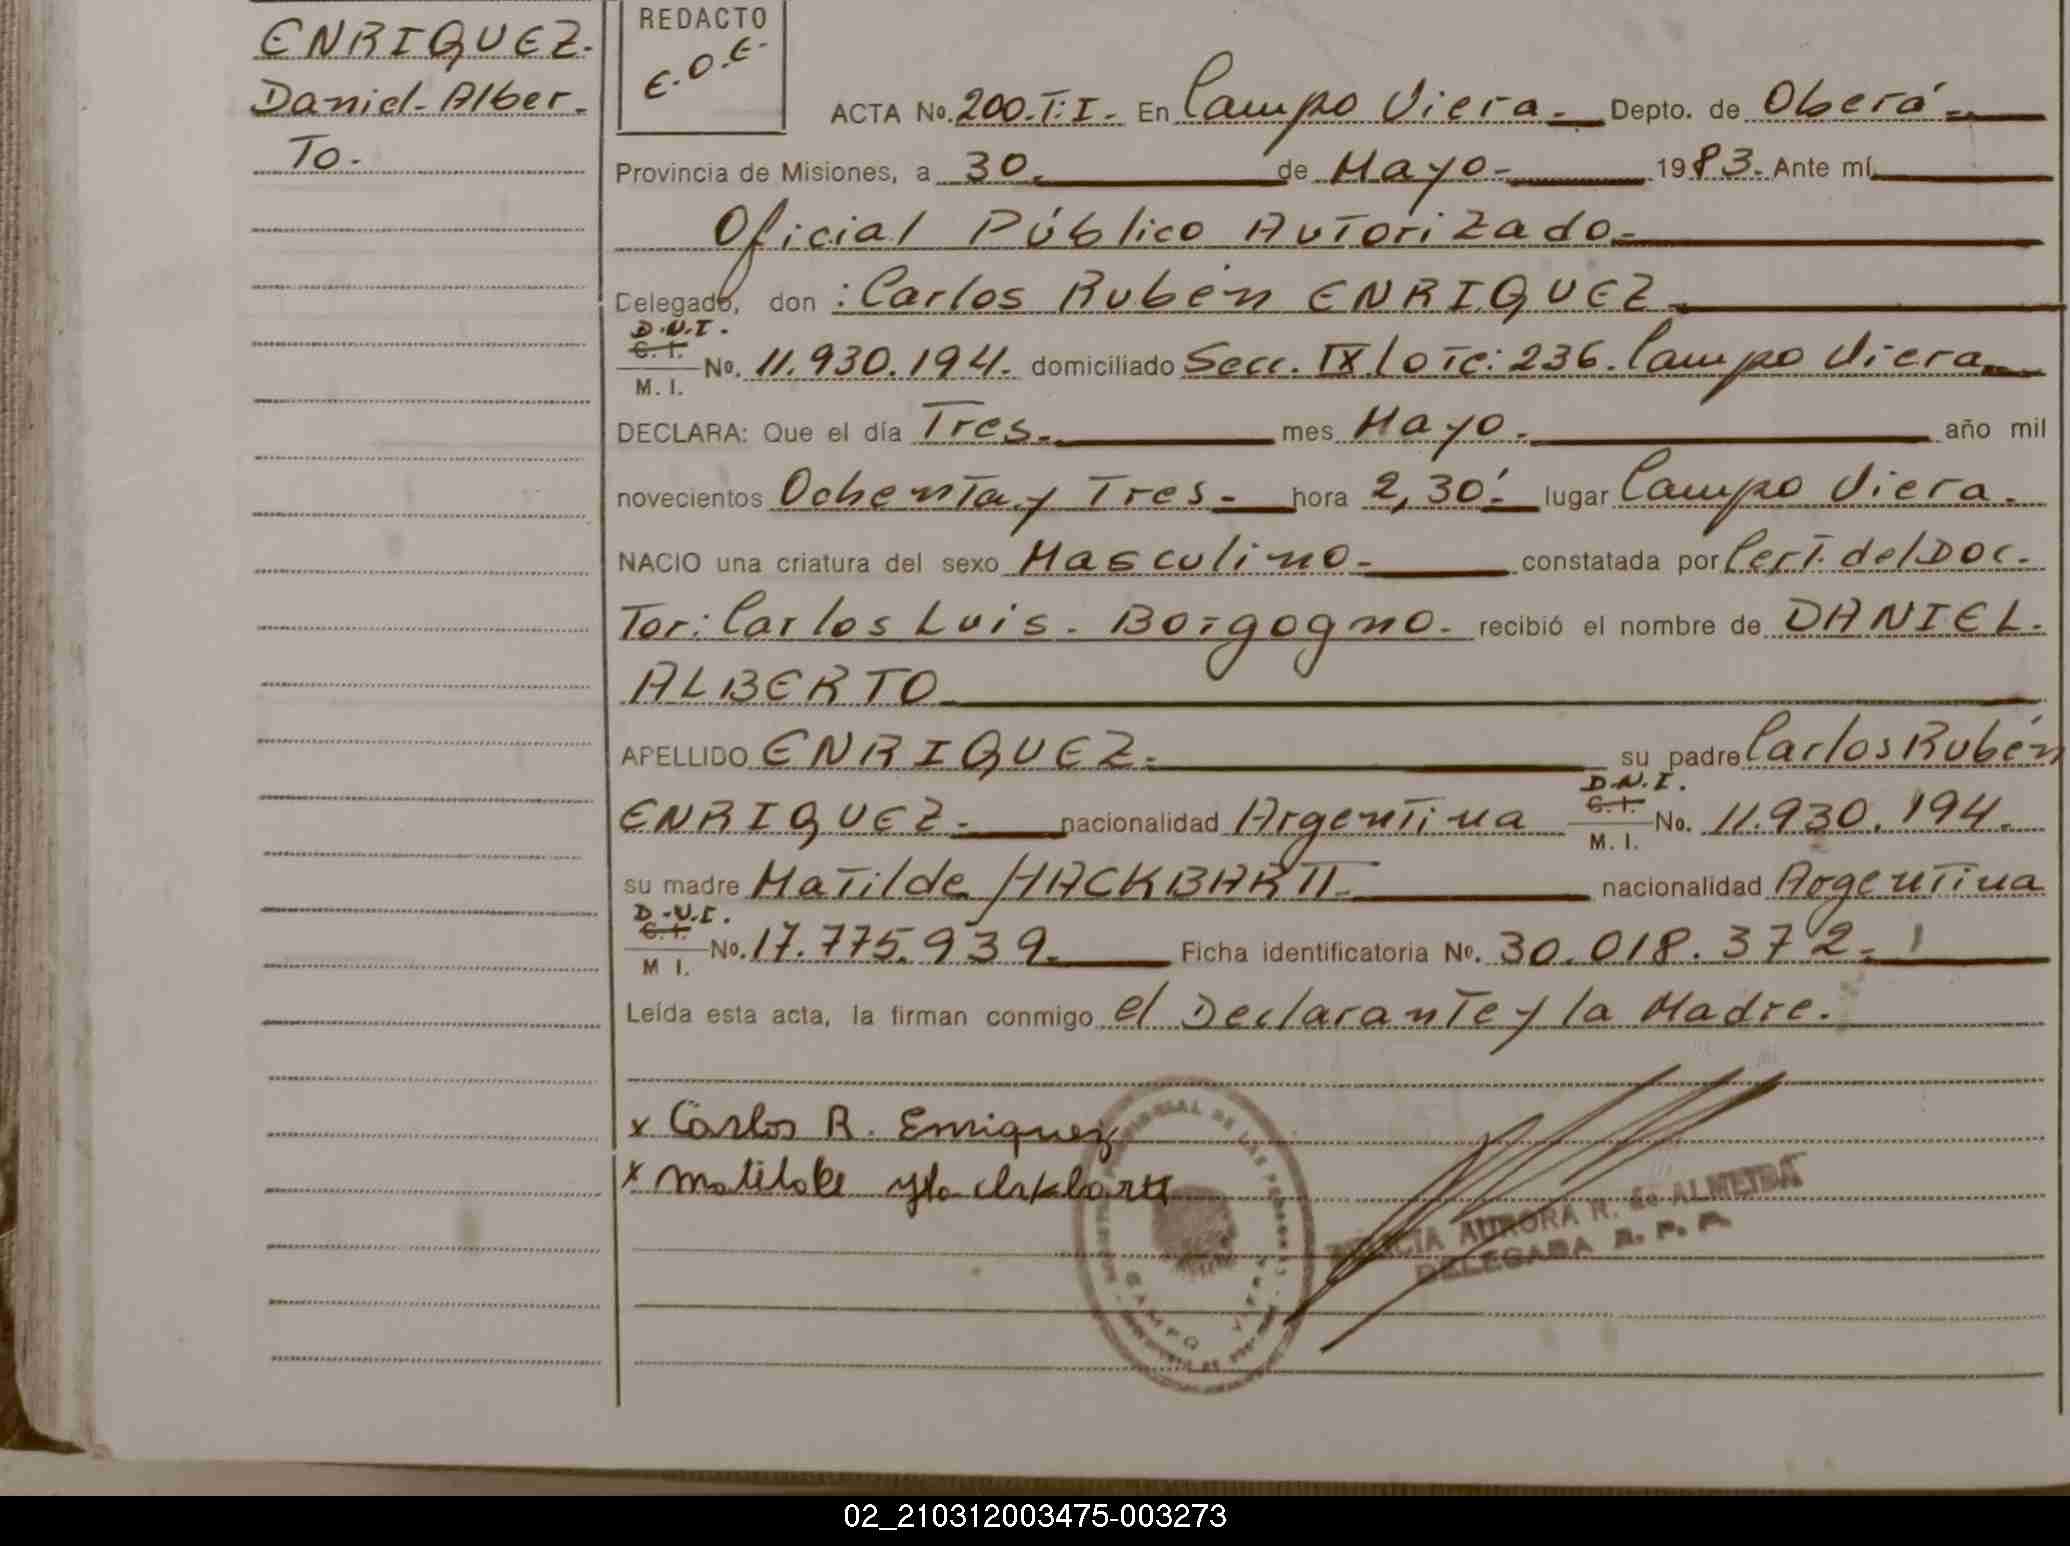 ENRIQUEZ.
Daniel-Alber-
To.
REDACTO
E.O.E.
ACTA No. 200.T:I. En Campo Viera. Depto. de Oberá.
Provincia de Misiones, a 30. de Mayo. 1983. Ante mí
Oficial Público Autorizado.
Delegado, don : Carlos Rubén ENRIQUEZ.
D.N.I.
C. I.
M. I.
No. 11.930.194. domiciliado Secc. IX Lote: 236. Campo Viera.
DECLARA: Que el día Tres. mes Mayo. año mil
novecientos Ochenta y Tres. hora 2,30'. lugar Campo Viera.
NACIO una criatura del sexo Masculino. constatada por Cert. del Doc.
Tor: Carlos Luis. Borgogno. recibió el nombre de DANIEL.
ALBERTO
APELLIDO ENRIQUEZ. su padre Carlos Rubén
ENRIQUEZ. nacionalidad Argentina D.N.I. C. I. M. I. No. 11.930.194.
su madre Matilde HACKBARTT. nacionalidad Argentina
D.N.I.
C. I.
M I.
No. 17.775.939. Ficha identificatoria No. 30.018.372.
Leída esta acta, la firman conmigo el Declarante y la Madre.
x Carlos R. Enriquez
x Matilde Hackbartt
DE LAS
CAMPO VIERA
AURORA R. de ALMEIDA
DELEGADA R. P. P.
02_210312003475-003273